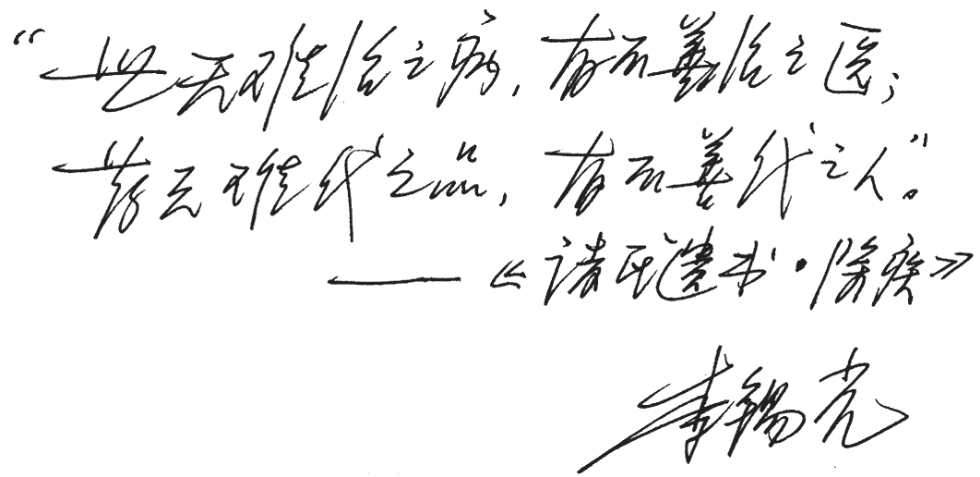 “世无难治之病，有不善治之医；
药无难代之品，有不善代之人”。
——《褚氏遗书·除疾》
李锡光